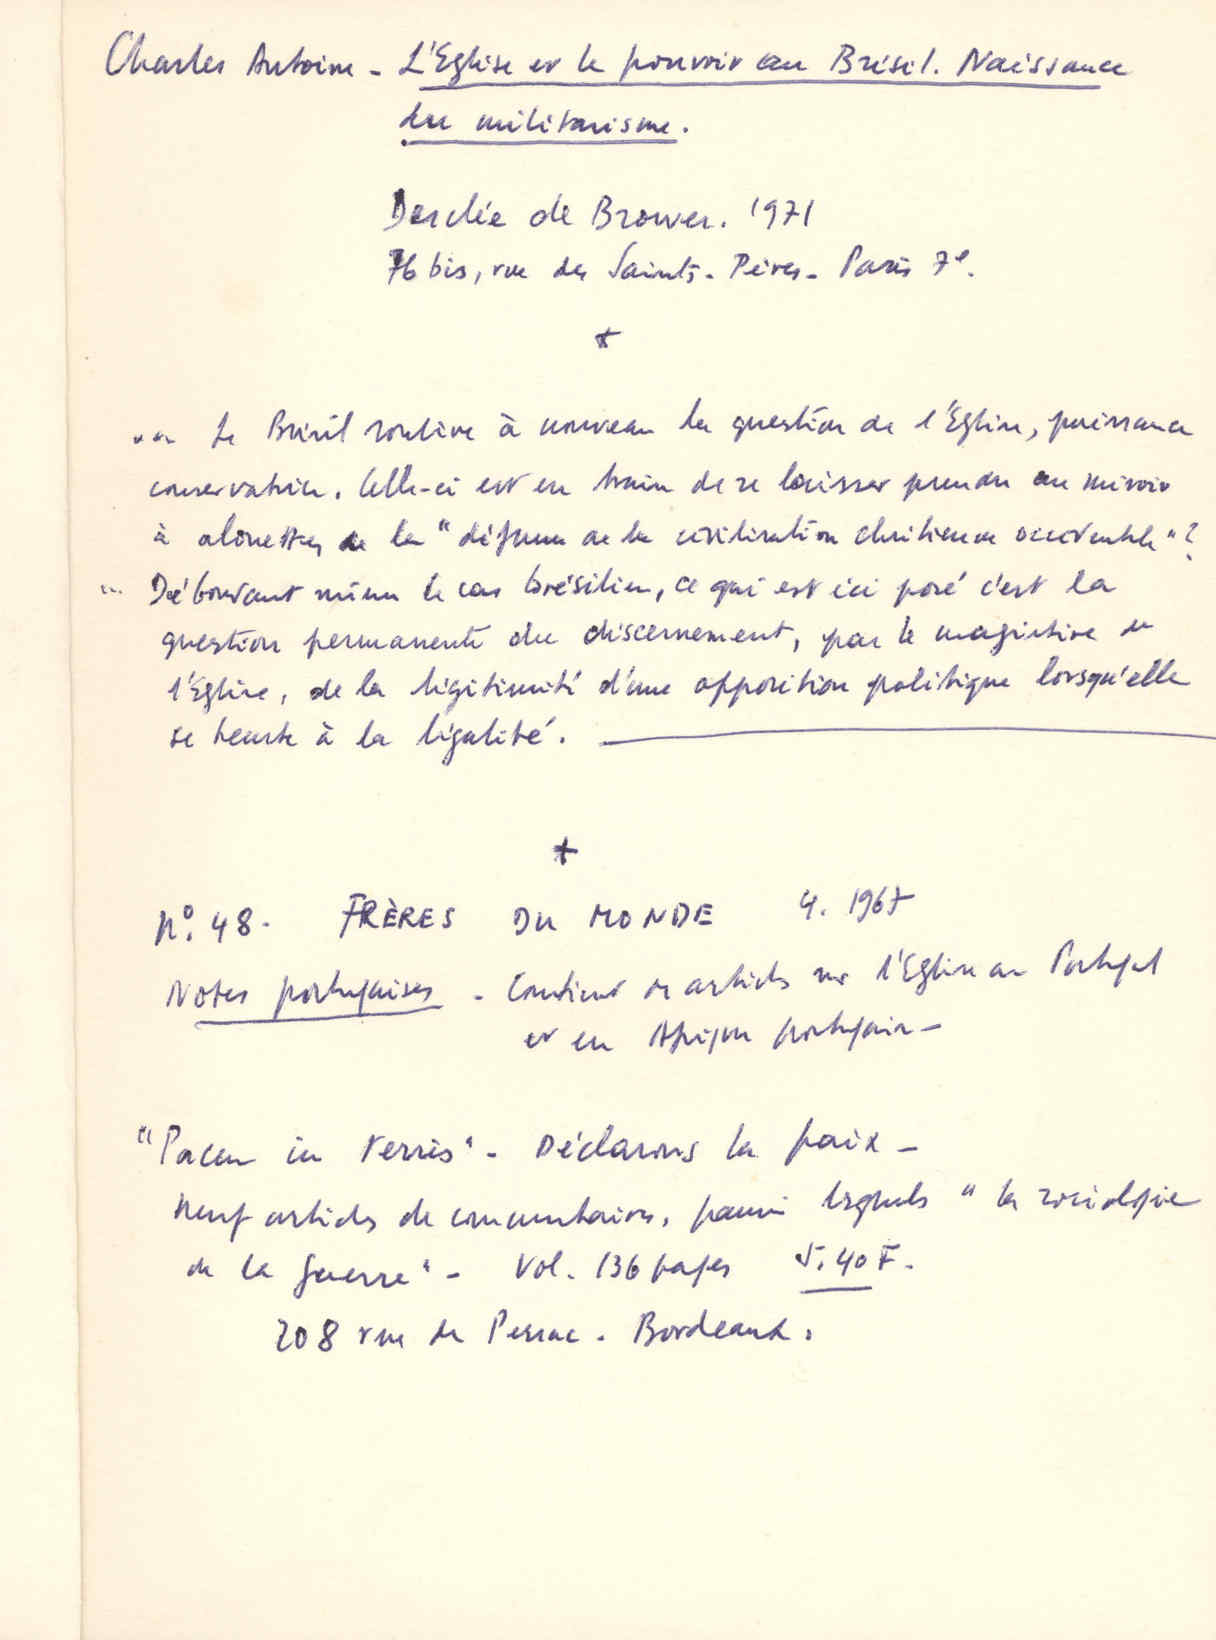 Charles Antoine - L'Eglise et le pouvoir au Brésil. Naissance
du militarisme.
Desclée de Brouwer. 1971
76 bis, rue des Saints-Pères - Paris 7e.
+
... Le Brésil soulève à nouveau la question de l'Eglise, puissance
conservatrice. Celle-ci est en train de se laisser prendre au miroir
à alouettes de la "défense de la civilisation chrétienne occidentale"?
... Débordant même le cas brésilien, ce qui est ici posé c'est la
question permanente du discernement, par le magistère de
l'Eglise, de la légitimité d'une opposition politique lorsqu'elle
se heurte à la légalité.
+
No. 48. FRÈRES DU MONDE 4. 1967
Notes portugaises - Contient articles sur l'Eglise au Portugal
et en Afrique portugaise -
"Pacem in Terris" - Déclarons la paix -
Neuf articles de commentaires, parmi lesquels "la sociologie
de la guerre" - Vol. 136 pages 5.40 F.
208 rue de Pessac. Bordeaux.